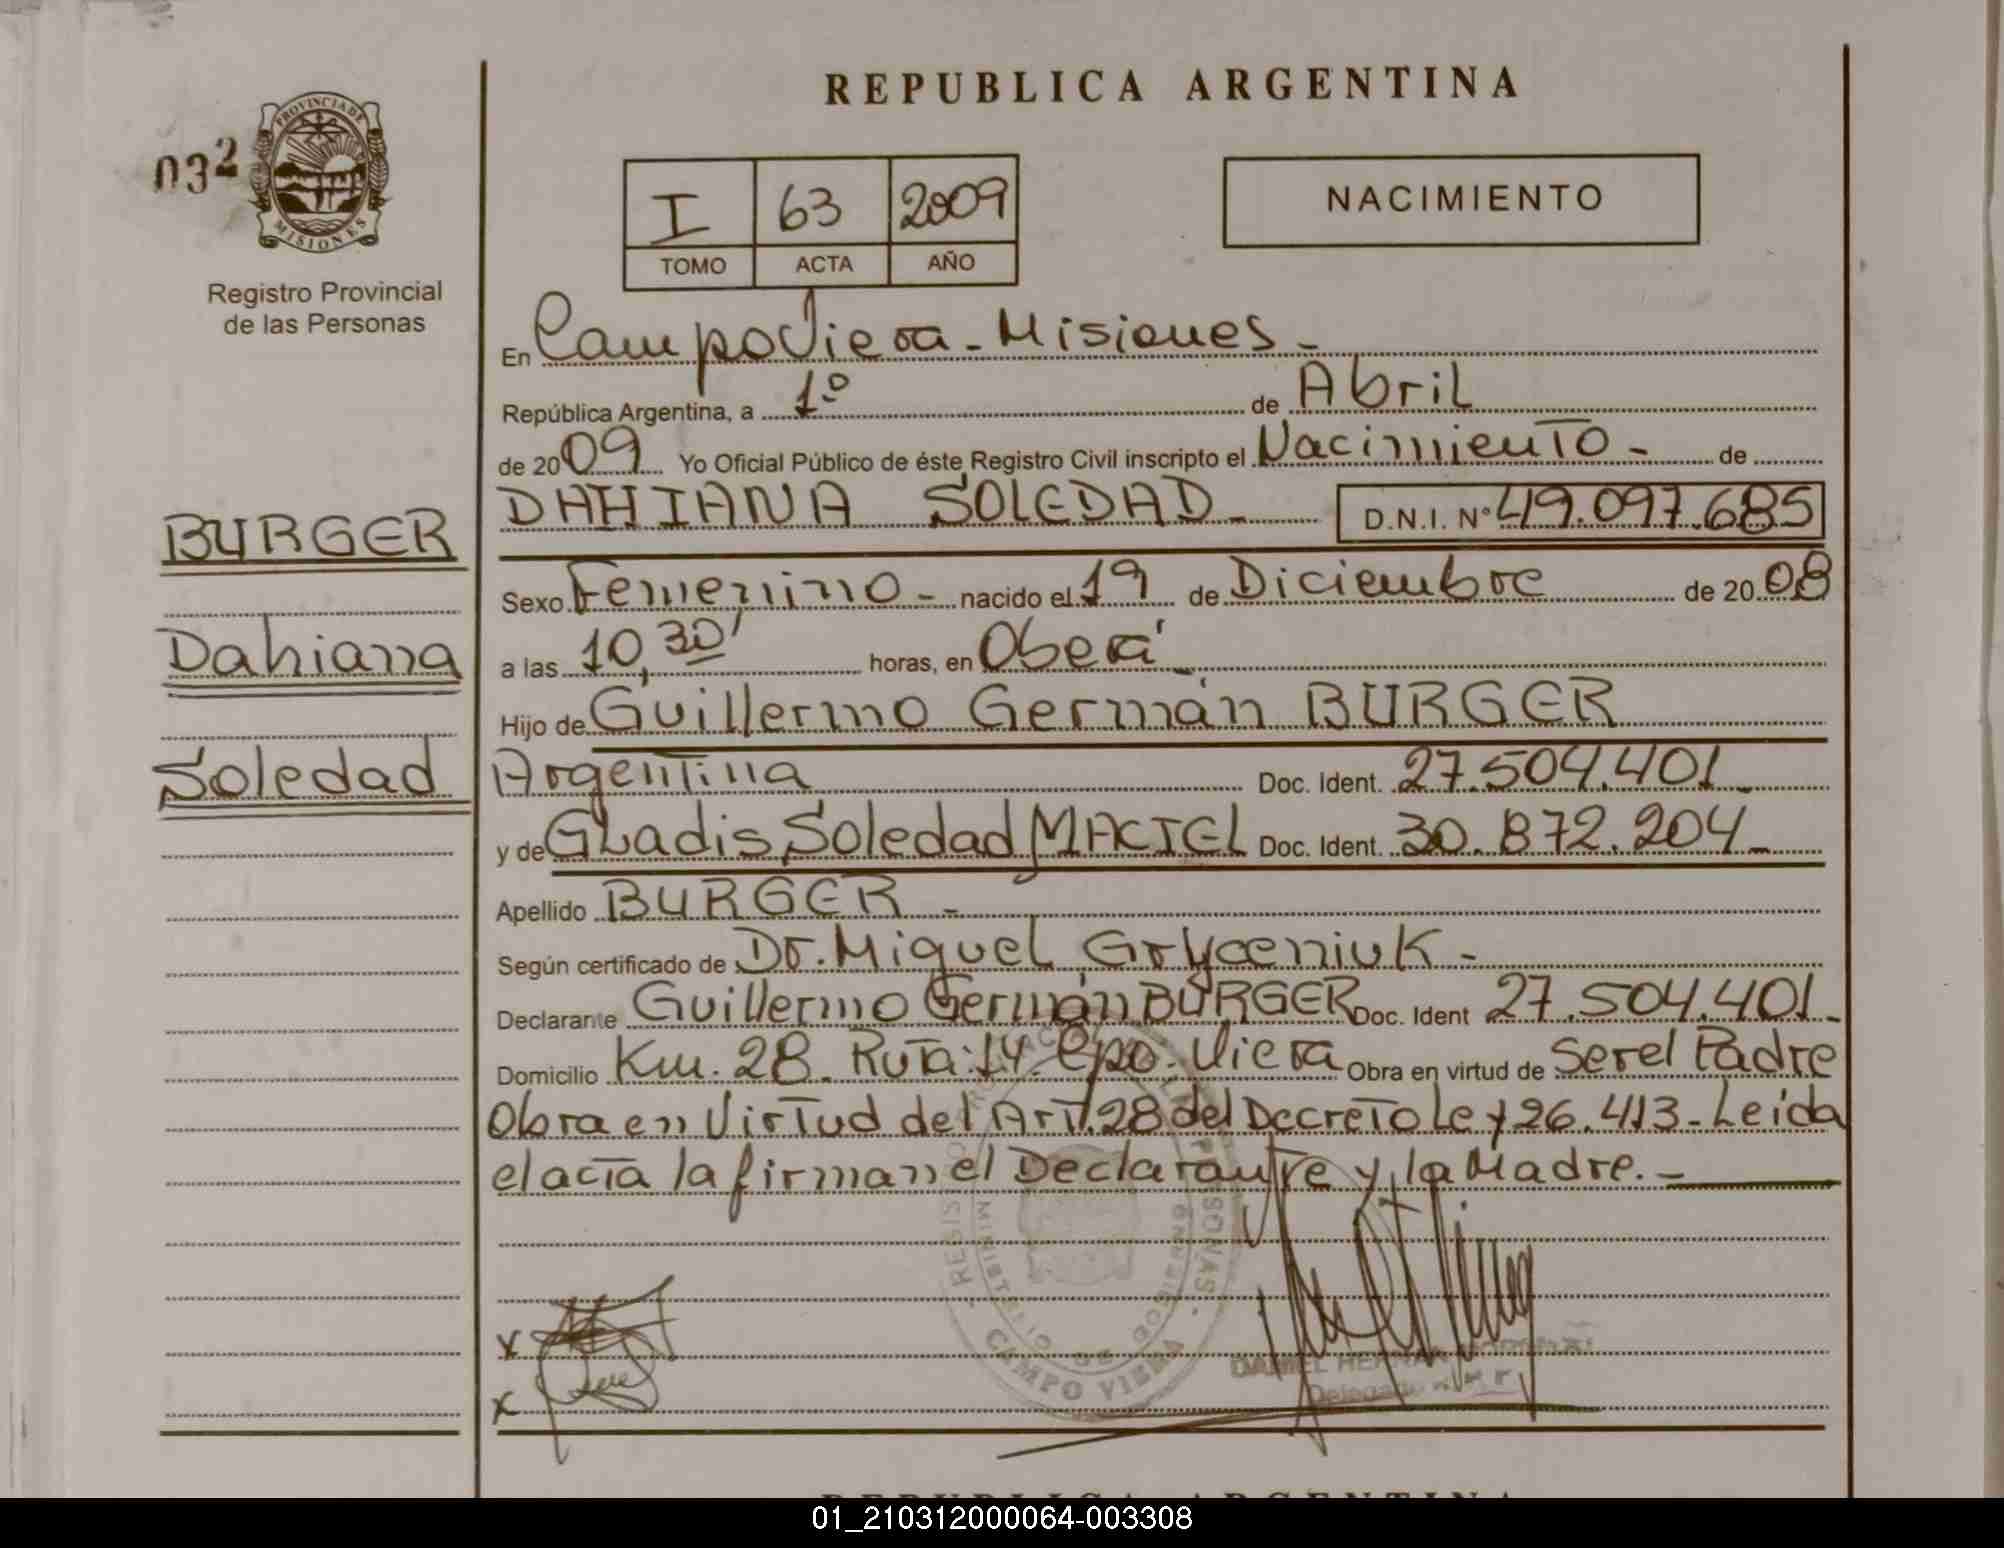 REPUBLICA ARGENTINA
032
PROVINCIA DE
MISIONES
Registro Provincial
de las Personas
I 63 2009
TOMO ACTA AÑO
NACIMIENTO
En Campo Viera - Misiones -
República Argentina, a 1º de Abril
de 2009 Yo Oficial Público de éste Registro Civil inscripto el Nacimiento - de
DAHIANA SOLEDAD - D.N.I. Nº 49.097.685
BURGER
Dahiana
Soledad
Sexo Femenino - nacido el 19 de Diciembre de 2008
a las 10,30' horas, en Oberá -
Hijo de Guillermo Germán BURGER
Argentina Doc. Ident. 27.504.401 -
y de Gladis Soledad MACIEL Doc. Ident. 30.872.204 -
Apellido BURGER -
Según certificado de Dr. Miguel Gryceniuk -
Declarante Guillermo Germán BURGER Doc. Ident 27.504.401 -
Domicilio Km. 28. Ruta: 14. Cpo. Viera Obra en virtud de Ser el Padre
Obra en Virtud del Art. 28 del Decreto Ley 26.413 - Leida
el acta la firman el Declarante y la Madre. -
MINISTERIO DE GOBIERNO
CAMPO VIERA
X
X
DANIEL HERNAN
Delegado
REPUBLICA ARGENTINA
01_210312000064-003308